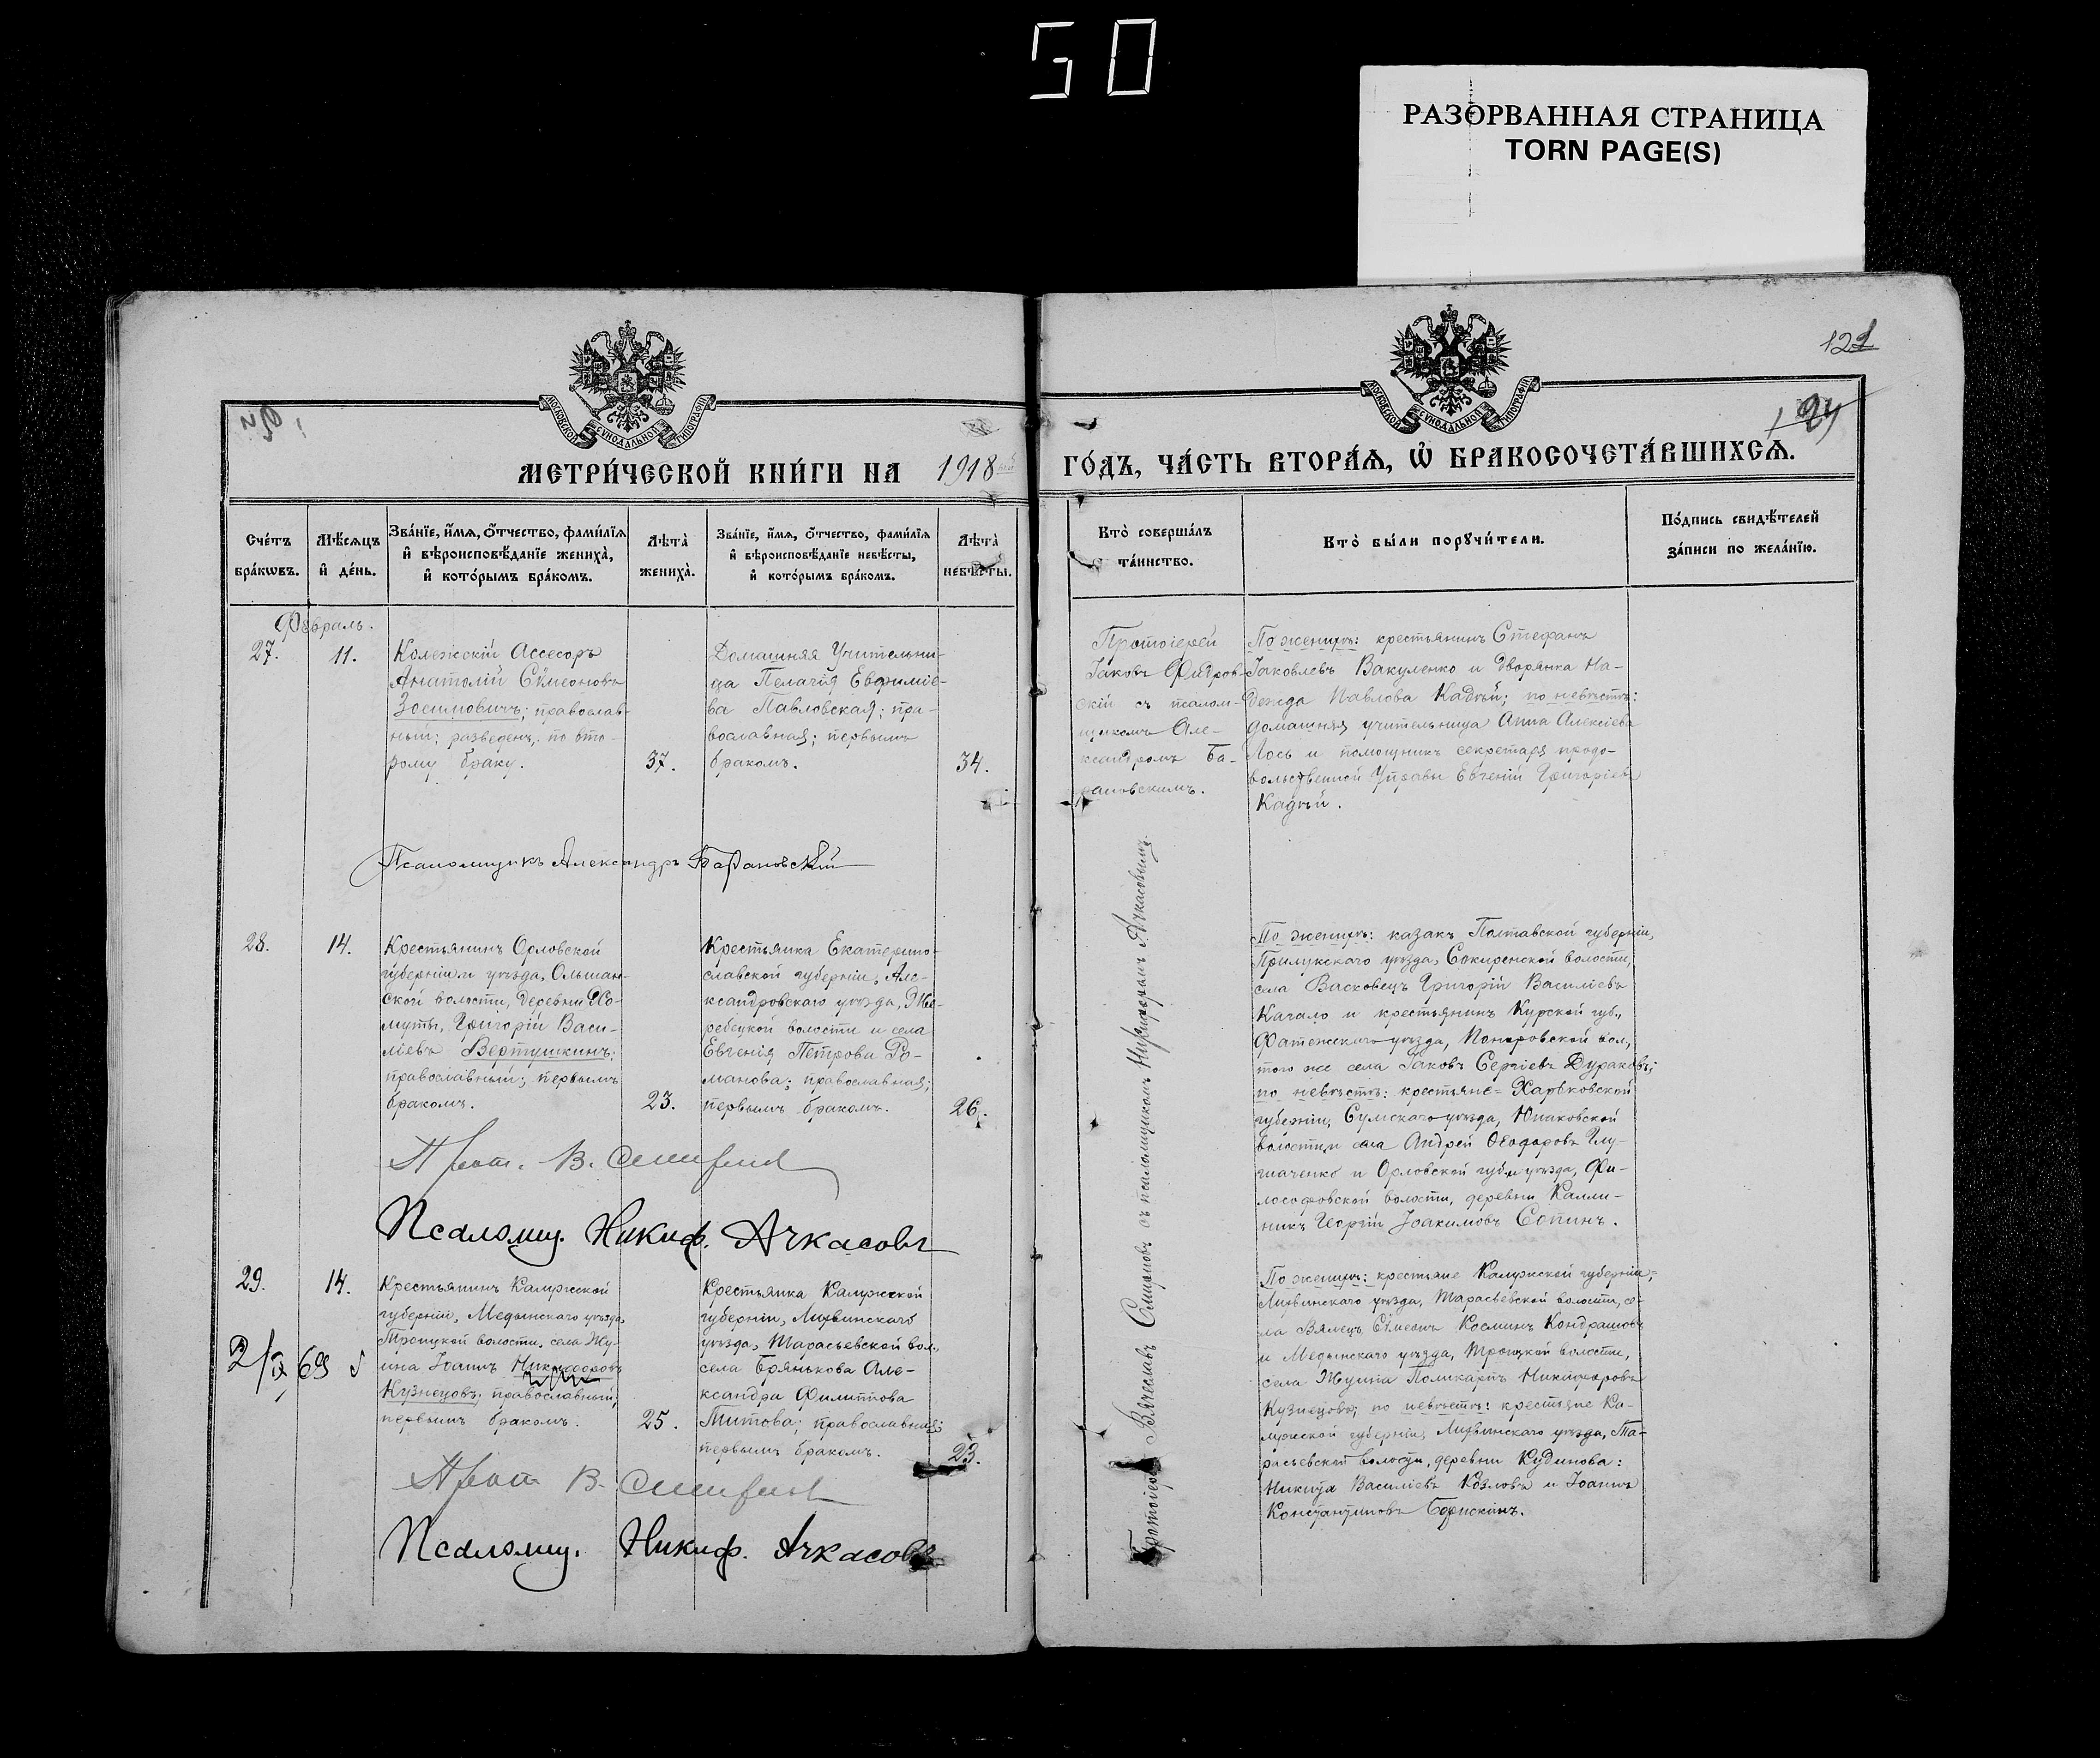 50
РАЗОРВАННАЯ СТРАНИЦА
TORN PAGE(S)
121
МОСКОВСКОЙ СѴНОДАЛЬНОЙ ТИПОГРАФІИ
МОСКОВСКОЙ СѴНОДАЛЬНОЙ ТИПОГРАФІИ
МЕТРИ́ЧЕСКОЙ КНИ́ГИ НА 1918
ГО́ДЪ, ЧА́СТЬ ВТОРА́Ѧ, Ѡ҆ БРАКОСОЧЕТА́ВШИХСѦ.
Сче́тъ
бра́кѡвъ.
Мѣ́сяцъ
и҆ де́нь.
Зва́нїе, и҆́мѧ, о҆́тчество, фами́лїѧ
и҆ вѣроисповѣ́данїе жениха̀,
и҆ кото́рымъ бра́комъ.
Лѣта̀
жениха̀.
Зва́нїе, и҆́мѧ, о҆́тчество, фами́лїѧ
и҆ вѣроисповѣ́данїе невѣ́сты,
и҆ кото́рымъ бра́комъ.
Лѣта̀
невѣ́сты.
Кто̀ соверша́лъ
та́инство.
Кто̀ бы́ли порꙋчи́тели.
По́дпись свидѣ́телей
за́писи по жела́нїю.
Февраль.
27.
11.
Колежскій Ассесоръ
Анатолій Сѵмеоновъ
Зосимовичъ; православ-
ный; разведенъ, по вто-
рому браку.
37.
Домашняя Учительни-
ца Пелагія Евфиміе-
ва Павловская; пра-
вославная; первымъ
бракомъ.
34.
Протоіерей
Іаковъ
скій съ псалом-
щикомъ Але-
ксандромъ Ба-
рановскимъ.
По женихѣ: крестьянинъ Стефанъ
Іаковлевъ Вакуленко и дворянка На-
дежда Павлова Кадѣй; по невѣстѣ:
домашняя учительница Анна Алексіева
Лось и помощникъ секретаря продо-
вольственной Управы Евгеній Григоріевъ
Кадѣй.
Псаломщикъ Александръ Барановскій
28.
14.
Крестьянинъ Орловской
губерніи и уѣзда, Ольшан-
ской волости, деревни Хо-
муты, Григорій Васи-
ліевъ Вертушкинъ;
православный; первымъ
бракомъ.
23.
Крестьянка Екатерино-
славской губерніи, Але-
ксандровскаго уѣзда, Же-
ребецкой волости и села
Евгенія Петрова Ро-
манова; православная;
первымъ бракомъ.
26.
Протоіерей Вячеславъ Смирновъ съ псаломщикомъ Никифоромъ Ачкасовымъ.
По женихѣ: казакъ Полтавской губерніи,
Прилукскаго уѣзда, Сокиренской волости,
села Васковецъ Григорій Василіевъ
Качало и крестьянинъ Курской губ.,
Фатежскаго уѣзда, Поныровской вол.,
того же села Іаковъ Сергіевъ Дураковъ;
по невѣстѣ: крестьяне= Харьковской
губерніи, Сумскаго уѣзда, Юнаковской
волости и села Андрей Ѳеодоровъ Глу-
щаченко и Орловской губ. и уѣзда, Фи-
лософовской волости, деревни Калли-
никъ Георгій Іоакимовъ Сопинъ.
Прот. В. Смирновъ
Псаломщ. Никиф. Ачкасовъ
29.
14.
Крестьянинъ Калужской
губерніи, Медынскаго уѣзда,
Троицкой волости, села Жу-
ина Іоаннъ Никифоровъ
Кузнецовъ; православный;
первымъ бракомъ.
25.
Крестьянка Калужской
губерніи, Лихвинскаго
уѣзда, Тарасьевской вол.,
села Брянькова Але-
ксандра Филиппова
Титова; православная;
первымъ бракомъ.
23.
По женихѣ: крестьяне Калужской губерніи=,
Лихвинскаго уѣзда, Тарасьевской волости, се-
ла Вялецъ Сѵмеонъ Косминъ Кондрашовъ
и Медынскаго уѣзда, Троицкой волости,
села Жуина Поликарпъ Никифоровъ
Кузнецовъ; по невѣстѣ: крестьяне Ка-
лужской губерніи, Лихвинскаго уѣзда, Та-
расьевской волости, деревни Кудинова:
Никита Василіевъ Козловъ и Іоаннъ
Константиновъ
Прот. В. Смирновъ
Псаломщ. Никиф. Ачкасовъ